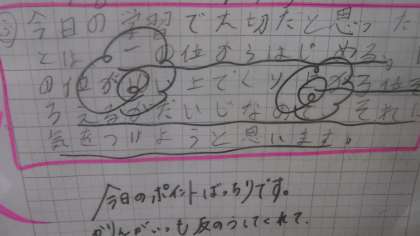 ③今日の学習で大切だと思った
とは、一の位からはじめる。
の位が 上でくり がる位
えるがだいじなので、それに
気をつけようと思います。
今日のポイントばっちりです。
かりんがいつも反のうしてくれて、